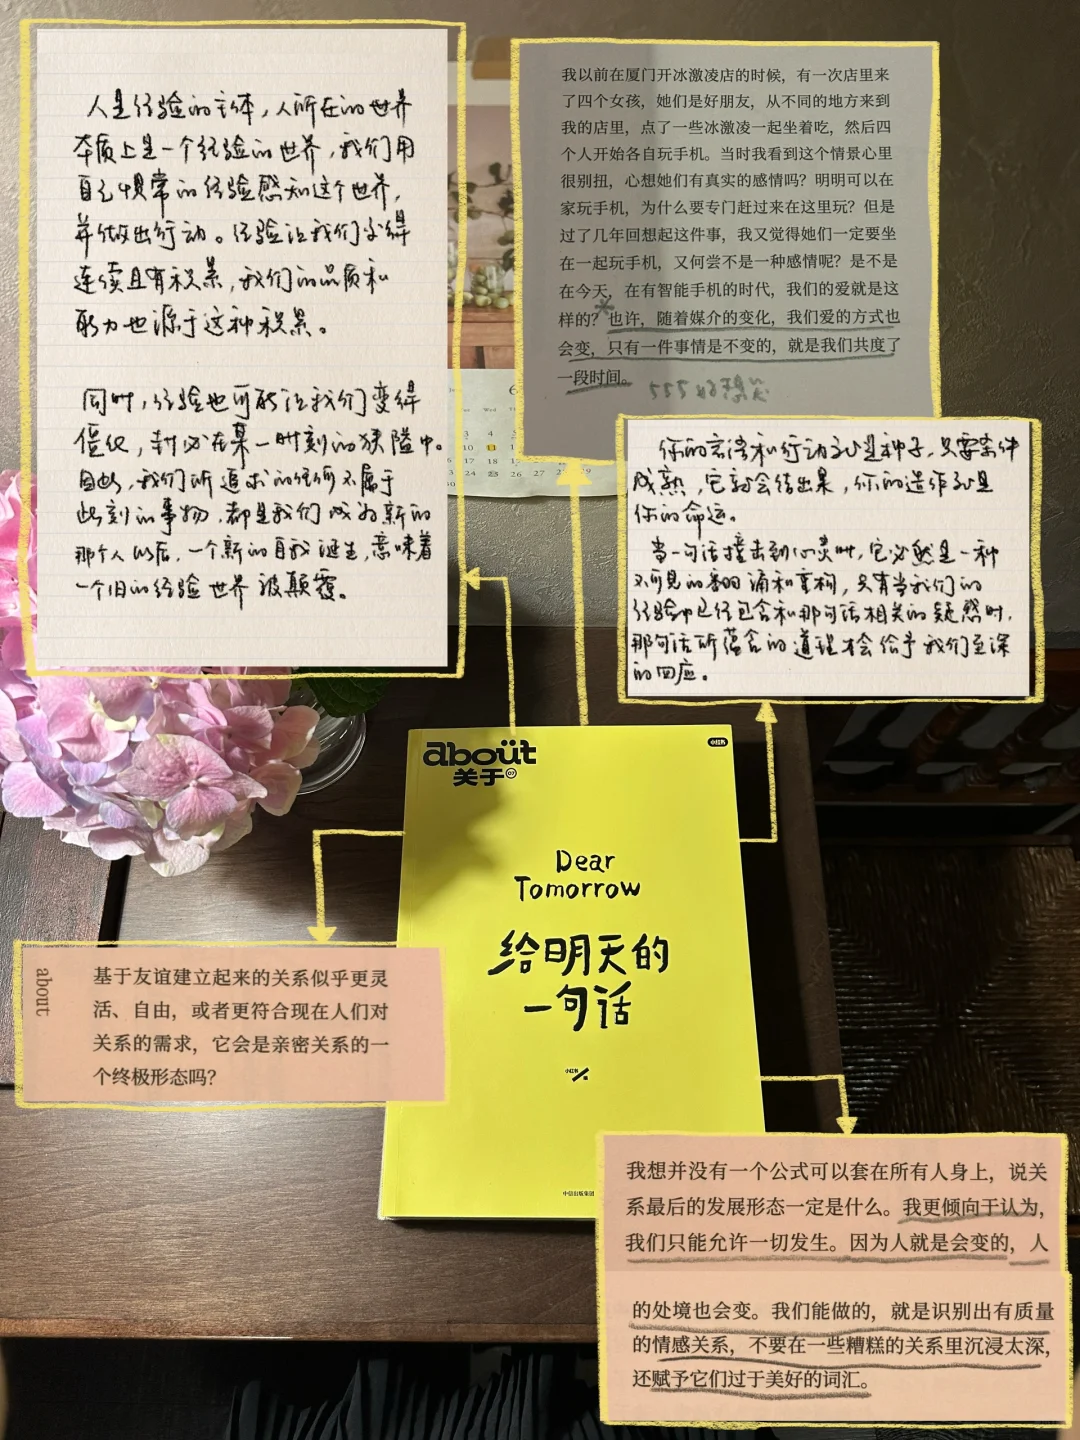 人是经验的主体，人所在的世界
本质上是一个经验的世界，我们用
自己惯常的经验感知这个世界，
并做出行动。经验让我们必得
连续且有积累，我们的品质和
能力也源于这种积累。
同时，经验也可能让我们变得
僵化，封闭在某一时刻的狭隘中。
因此，我们所追求的任何不属于
此刻的事物，都是我们成为新的
那个人以后，一个新的自我诞生，意味着
一个旧的经验世界被颠覆。
我以前在厦门开冰激凌店的时候，有一次店里来
了四个女孩，她们是好朋友，从不同的地方来到
我的店里，点了一些冰激凌一起坐着吃，然后四
个人开始各自玩手机。当时我看到这个情景心里
很别扭，心想她们有真实的感情吗？明明可以在
家玩手机，为什么要专门赶过来在这里玩？但是
过了几年回想起这件事，我又觉得她们一定要坐
在一起玩手机，又何尝不是一种感情呢？是不是
在今天，在有智能手机的时代，我们的爱就是这
样的？也许，随着媒介的变化，我们爱的方式也
会变，只有一件事情是不变的，就是我们共度了
一段时间。
你的言语和行动就是种子，只要条件
成熟，它就会结出果，你的造作就是
你的命运。
当一句话撞击到心灵时，它必然是一种
不可见的翻涌和真相，只有当我们的
经验中已经包含和那句话相关的疑惑时，
那句话所蕴含的道理才会给予我们至深
的回应。
about
关于
07
小红书
Dear
Tomorrow
给明天的
一句话
小红书
编
中信出版集团
about
基于友谊建立起来的关系似乎更灵
活、自由，或者更符合现在人们对
关系的需求，它会是亲密关系的一
个终极形态吗？
我想并没有一个公式可以套在所有人身上，说关
系最后的发展形态一定是什么。我更倾向于认为，
我们只能允许一切发生。因为人就是会变的，人
的处境也会变。我们能做的，就是识别出有质量
的情感关系，不要在一些糟糕的关系里沉浸太深，
还赋予它们过于美好的词汇。